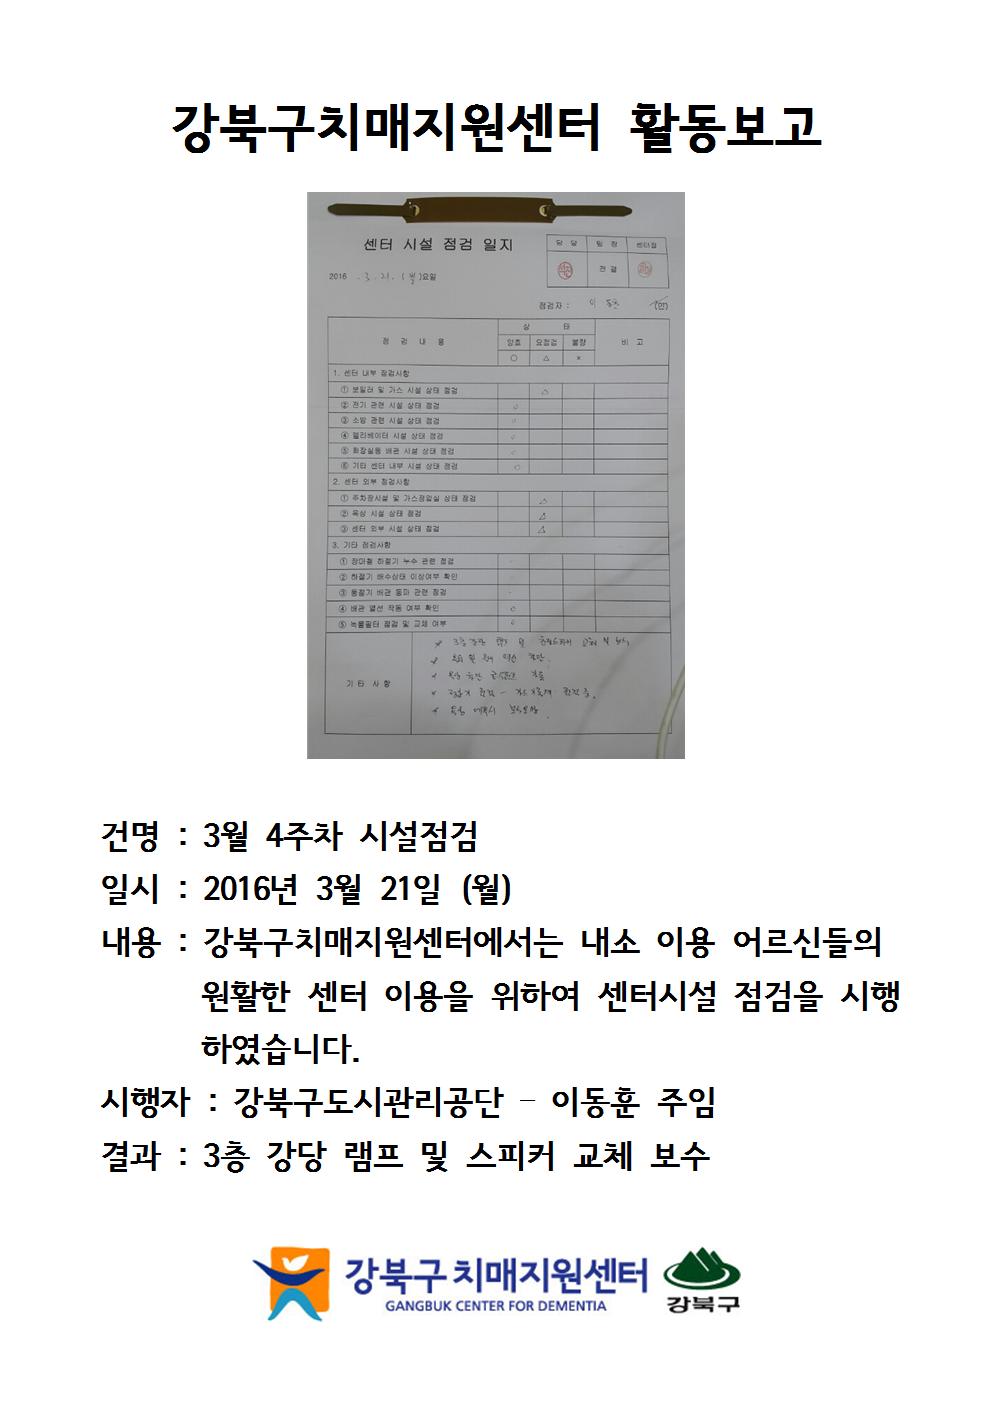 강북구치매지원센터 활동보고
센터 시설 점검 일지
담 당 팀 장 센터장
전 결
2016 . 3. 21. ( 월 )요일
점검자 : 이 동훈 (인)
점 검 내 용 상 태 비 고
양호 요점검 불량
○ △ ×
1. 센터 내부 점검사항
① 보일러 및 가스 시설 상태 점검 △
② 전기 관련 시설 상태 점검 ○
③ 소방 관련 시설 상태 점검 ○
④ 엘리베이터 시설 상태 점검 ○
⑤ 화장실등 배관 시설 상태 점검 ○
⑥ 기타 센터 내부 시설 상태 점검 ○
2. 센터 외부 점검사항
① 주차장시설 및 가스정압실 상태 점검 △
② 옥상 시설 상태 점검 △
③ 센터 외부 시설 상태 점검 △
3. 기타 점검사항
① 장마철 하절기 누수 관련 점검 -
② 하절기 배수상태 이상여부 확인 -
③ 동절기 배관 동파 관련 점검 -
④ 배관 열선 작동 여부 확인 ○
⑤ 녹물필터 점검 및 교체 여부 ○
기 타 사 항
건명 : 3월 4주차 시설점검
일시 : 2016년 3월 21일 (월)
내용 : 강북구치매지원센터에서는 내소 이용 어르신들의
원활한 센터 이용을 위하여 센터시설 점검을 시행
하였습니다.
시행자 : 강북구도시관리공단 - 이동훈 주임
결과 : 3층 강당 램프 및 스피커 교체 보수
강북구치매지원센터
GANGBUK CENTER FOR DEMENTIA
강북구